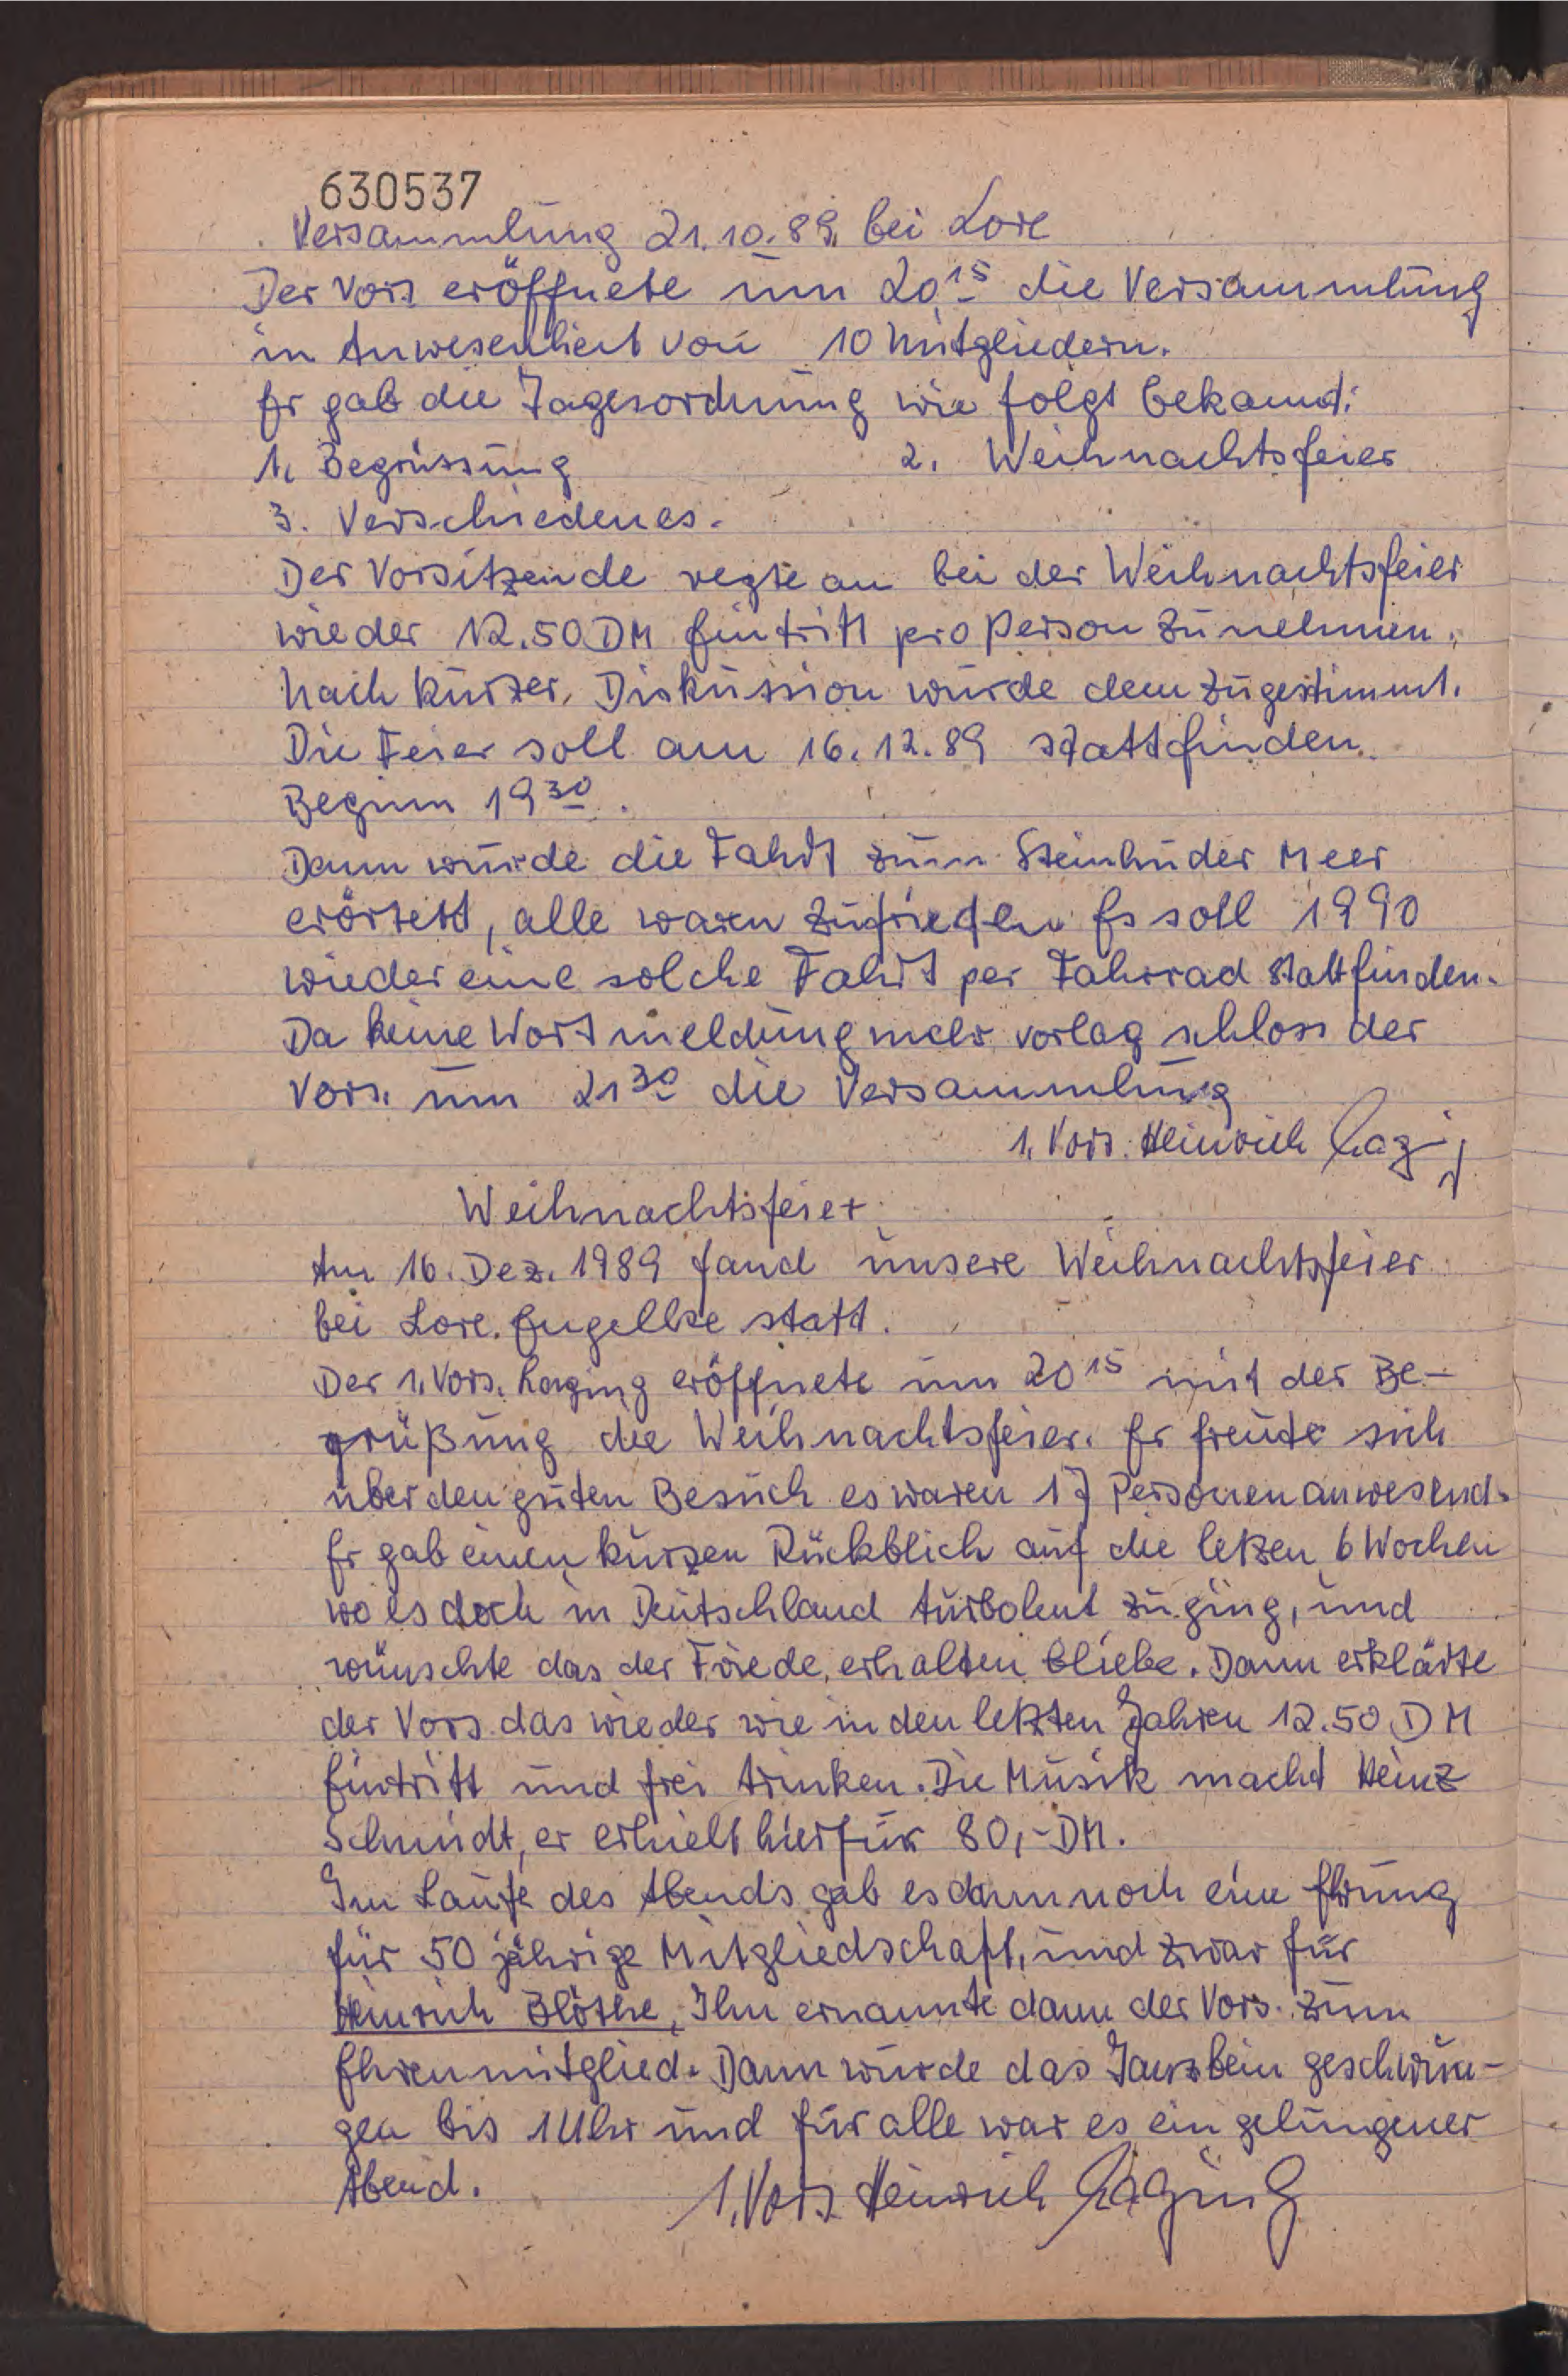 630537
Versammlung 21.10.89. bei Lore
Der Vors eröffnete um 20 15 die Versammlung
in Anwesenheit von 10 Mitgliedern.
Er gab die Tagesordnung wie folgt bekannt:
1. Begrüssung 2. Weihnachtsfeier
3. Verschiedenes.
Der Vorsitzende regte an bei der Weihnachtsfeier
wieder 12.50 DM Eintritt pro Person zu nehmen.
Nach kurzer Diskussion wurde dem zugestimmt.
Die Feier soll am 16.12.89 stattfinden.
Beginn 19 30.
Dann wurde die Fahrt zum Steinhuder Meer
erörtert, alle waren zufrieden Es soll 1990
wieder eine solche Fahrt per Fahrrad stattfinden.
Da keine Wortmeldung mehr vorlag schloss der
Vors. um 21 30 die Versammlung
1. Vors. Heinrich
Weihnachtsfeier
Am 16. Dez. 1989 fand unsere Weihnachtsfeier
bei Lore Engelke statt.
Der 1. Vors. Laging eröffnete um 20 15 mit der Be-
grüßung die Weihnachtsfeier. Er freute sich
über den guten Besuch es waren 17 Personen anwesend.
Er gab einen kurzen Rückblich auf die letzen 6 Wochen
wo es doch in Deutschland turbolent zu ging, und
wünschte das der Friede erhalten bliebe. Dann erklärte
der Vors. das wieder wie in den letzten Jahren 12.50 DM
Eintritt und frei trinken. Die Musik macht Heinz
Schmidt, er erhielt hierfür 80,- DM.
Im Laufe des Abends gab es dann noch eine Ehrung
für 50 jährige Mitgliedschaft, und zwar für
Heinrich Blöthe, Ihn ernannte dann der Vors. zum
Ehrenmitglied. Dann wurde das Tanzbein geschwun-
gen bis 1 Uhr und für alle war es ein gelungener
Abend. 1. Vors Heinrich Laging